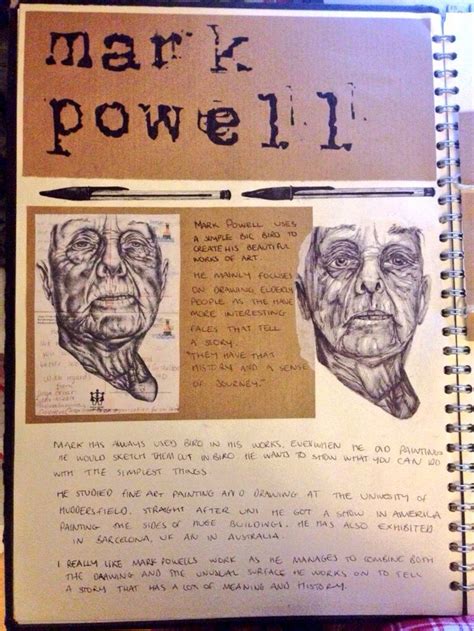 mark
powell
MARK POWELL USES
A SIMPLE BIC BIRO TO
CREATE HIS BEAUTIFUL
WORKS OF ART.
HE MAINLY FOCUSES
ON DRAWING ELDERLY
PEOPLE AS THE HAVE
MORE INTERESTING
FACES THAT TELL
A STORY.
"THEY HAVE THAT
HISTORY AND A SENSE
OF JOURNEY."
MARK HAS ALWAYS USED BIRO IN HIS WORKS, EVEN WHEN HE DID PAINTING
HE WOULD SKETCH THEM OUT IN BIRO. HE WANTS TO SHOW WHAT YOU CAN DO
WITH THE SIMPLEST THINGS.
HE STUDIED FINE ART PAINTING AND DRAWING AT THE UNIVERSITY OF
HUDDERSFIELD. STRAIGHT AFTER UNI HE GOT A IN AMERICA
PAINTING THE SIDES OF HUGE BUILDINGS. HE HAS ALSO EXHIBITED
IN BARCELONA, UK AN IN AUSTRALIA.
I REALLY LIKE MARK POWELLS WORK AS HE MANAGES TO COMBINE BOTH
THE DRAWING AND THE UNUSUAL SURFACE HE WORKS ON TO TELL
A STORY THAT HAS A LOTS OF MEANING AND HISTORY.